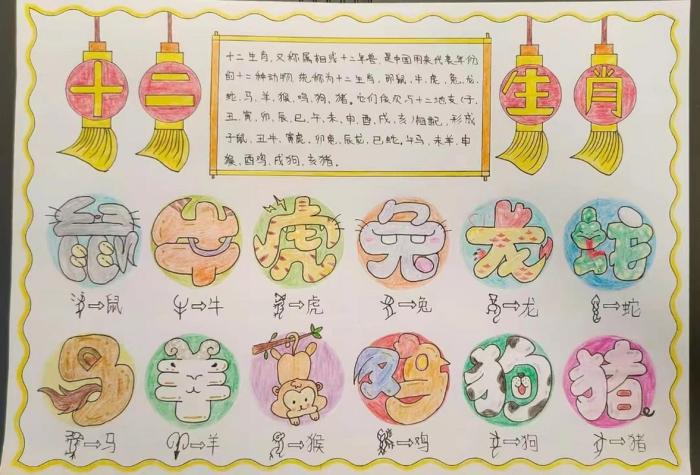 十二生肖
十二生肖,又称属相或十二年兽,是中国用来代表年份
的十二种动物,统称为十二生肖,即鼠,牛,虎,兔,龙,
蛇,马,羊,猴,鸡,狗,猪。它们依次与十二地支(子,
丑,寅,卯,辰,巳,午,未,申,酉,戌,亥)相配,形成
子鼠,丑牛,寅虎,卯兔,辰龙,巳蛇,午马,未羊,申
猴,酉鸡,戌狗,亥猪。
鼠 牛 虎 兔 龙 蛇
→鼠 →牛 →虎 →兔 →龙 →蛇
马 羊 鸡 狗 猪
→马 →羊 →猴 →鸡 →狗 →猪